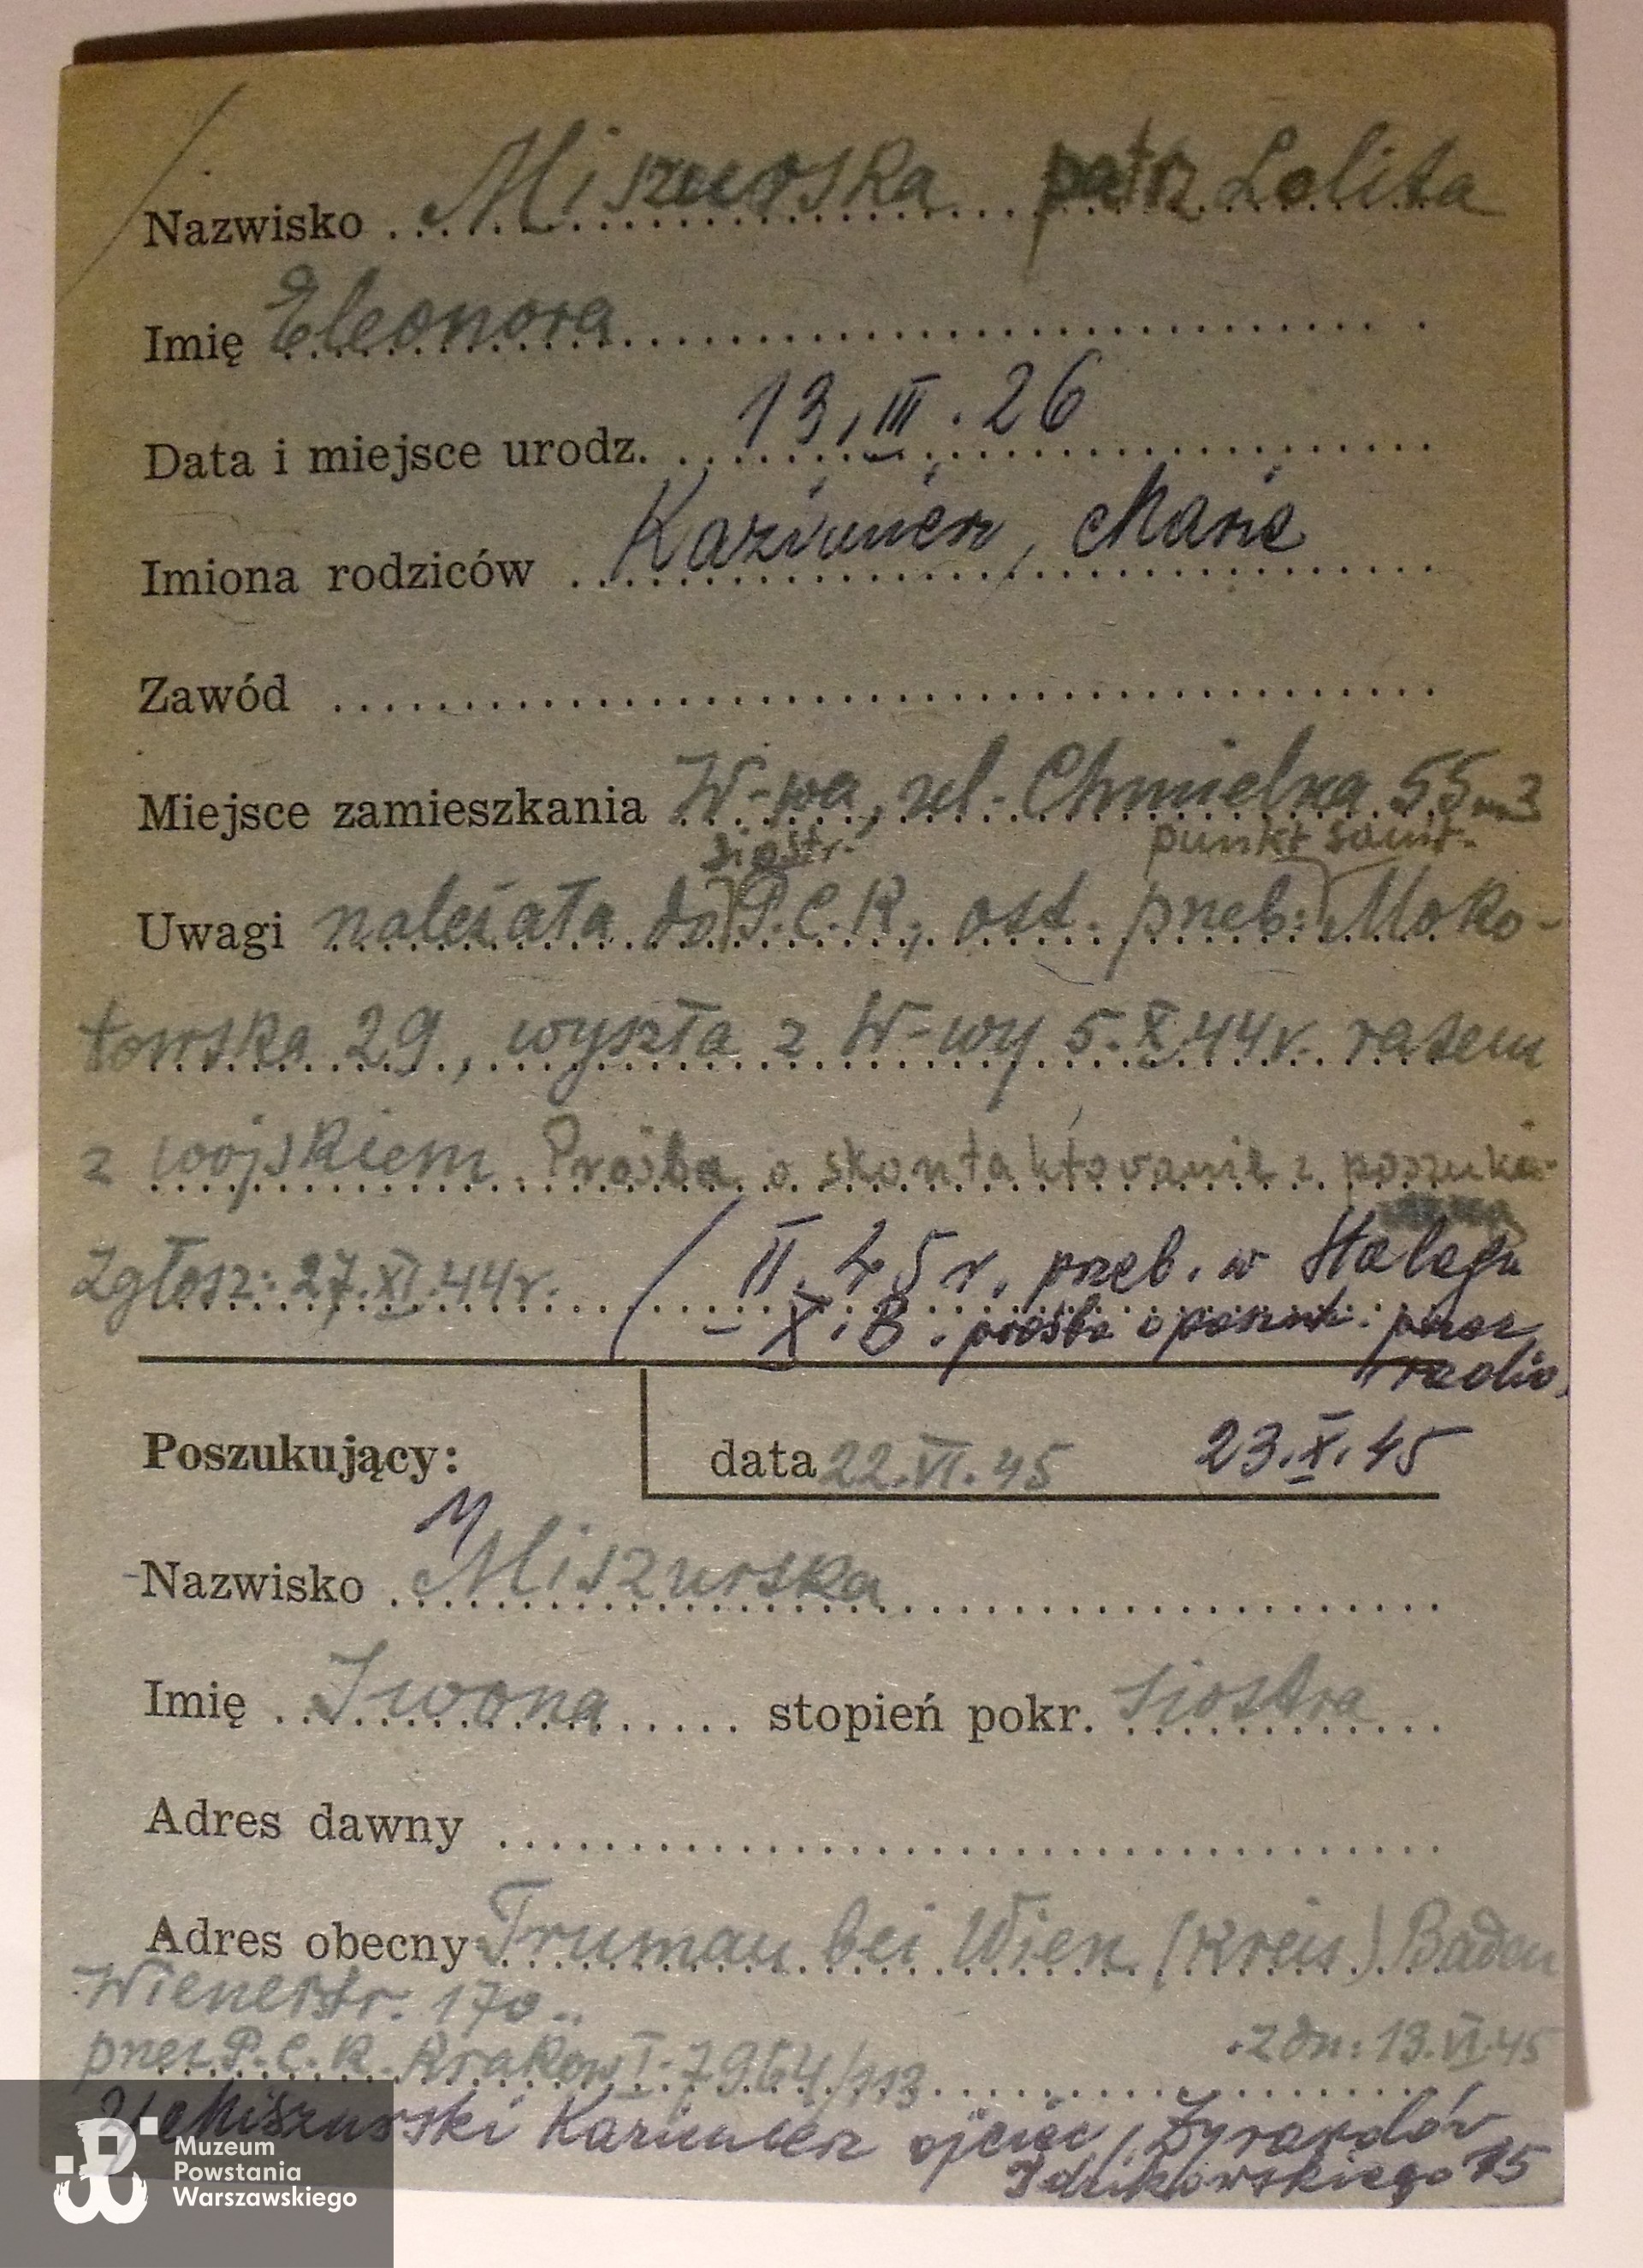 Nazwisko Miszurska patrz Lolita
Imię Eleonora
Data i miejsce urodz. 13, III. 26
Imiona rodziców Kazimierz, Maria
Zawód
Miejsce zamieszkania W-wa, ul. Chmielna 55 m 3
siostr. punkt sanit.
Uwagi należała do P.C.K., ost. przeb: Moko-
towska 29, wyszła z W-wy 5.X.44r. razem
z wojskiem. Prośba o skontaktowanie z poszuki-
Zgłosz: 27.XI.44r. II. 45 r. przeb. w Stalagu
- X. B. prośba o poszuk. przez
radio.
Poszukujący: data 22.VI.45 23.X.45
1/
Nazwisko Miszurska
Imię Iwona stopień pokr. siostra
Adres dawny
Adres obecny Trumau bei Wien (Kreis) Baden
Wienerstr. 170
przez P.C.K. Kraków I-7964/113 z dn: 13.VI.45
2/ Miszurski Kazimierz ojciec, Żyrardów
15
Muzeum
Powstania
Warszawskiego